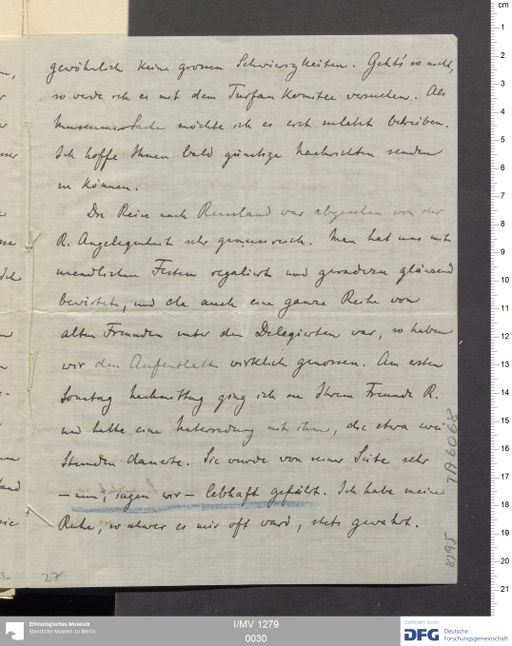 gewöhnlich keine grossen Schwierigkeiten. Geht's so nicht,
so werde ich es mit dem Turfan Komitee versuchen. Als
Museums-Sache möchte ich es erst zuletzt betreiben.
Ich hoffe Ihnen bald günstige Nachrichten senden
zu können.
Die Reise nach Russland war abgesehen von der
R. Angelegenheit sehr genussreich. Man hat uns mit
unendlichen Festen regalirt und geradezu glänzend
bewirtet, und da auch eine ganze Reihe von
alten Freunden unter den Delegierten war, so haben
wir den Aufenthalt wirklich genossen. Am ersten
Sonntag Nachmittag ging ich zu Ihrem Freunde R.
und hatte eine Unterredung mit ihm, die etwa zwei
Stunden dauerte. Sie wurde von seiner Seite sehr
– nun, sagen wir – lebhaft geführt. Ich habe meine
Ruhe, so schwer es mir oft ward, stets gewahrt.
27
TA 6065
8795
cm
1
2
3
4
5
6
7
8
9
10
11
12
13
14
15
16
17
18
19
20
21
Ethnologisches Museum
Staatliche Museen zu Berlin
I/MV 1279
0030
Gefördert durch
DFG Deutsche
Forschungsgemeinschaft